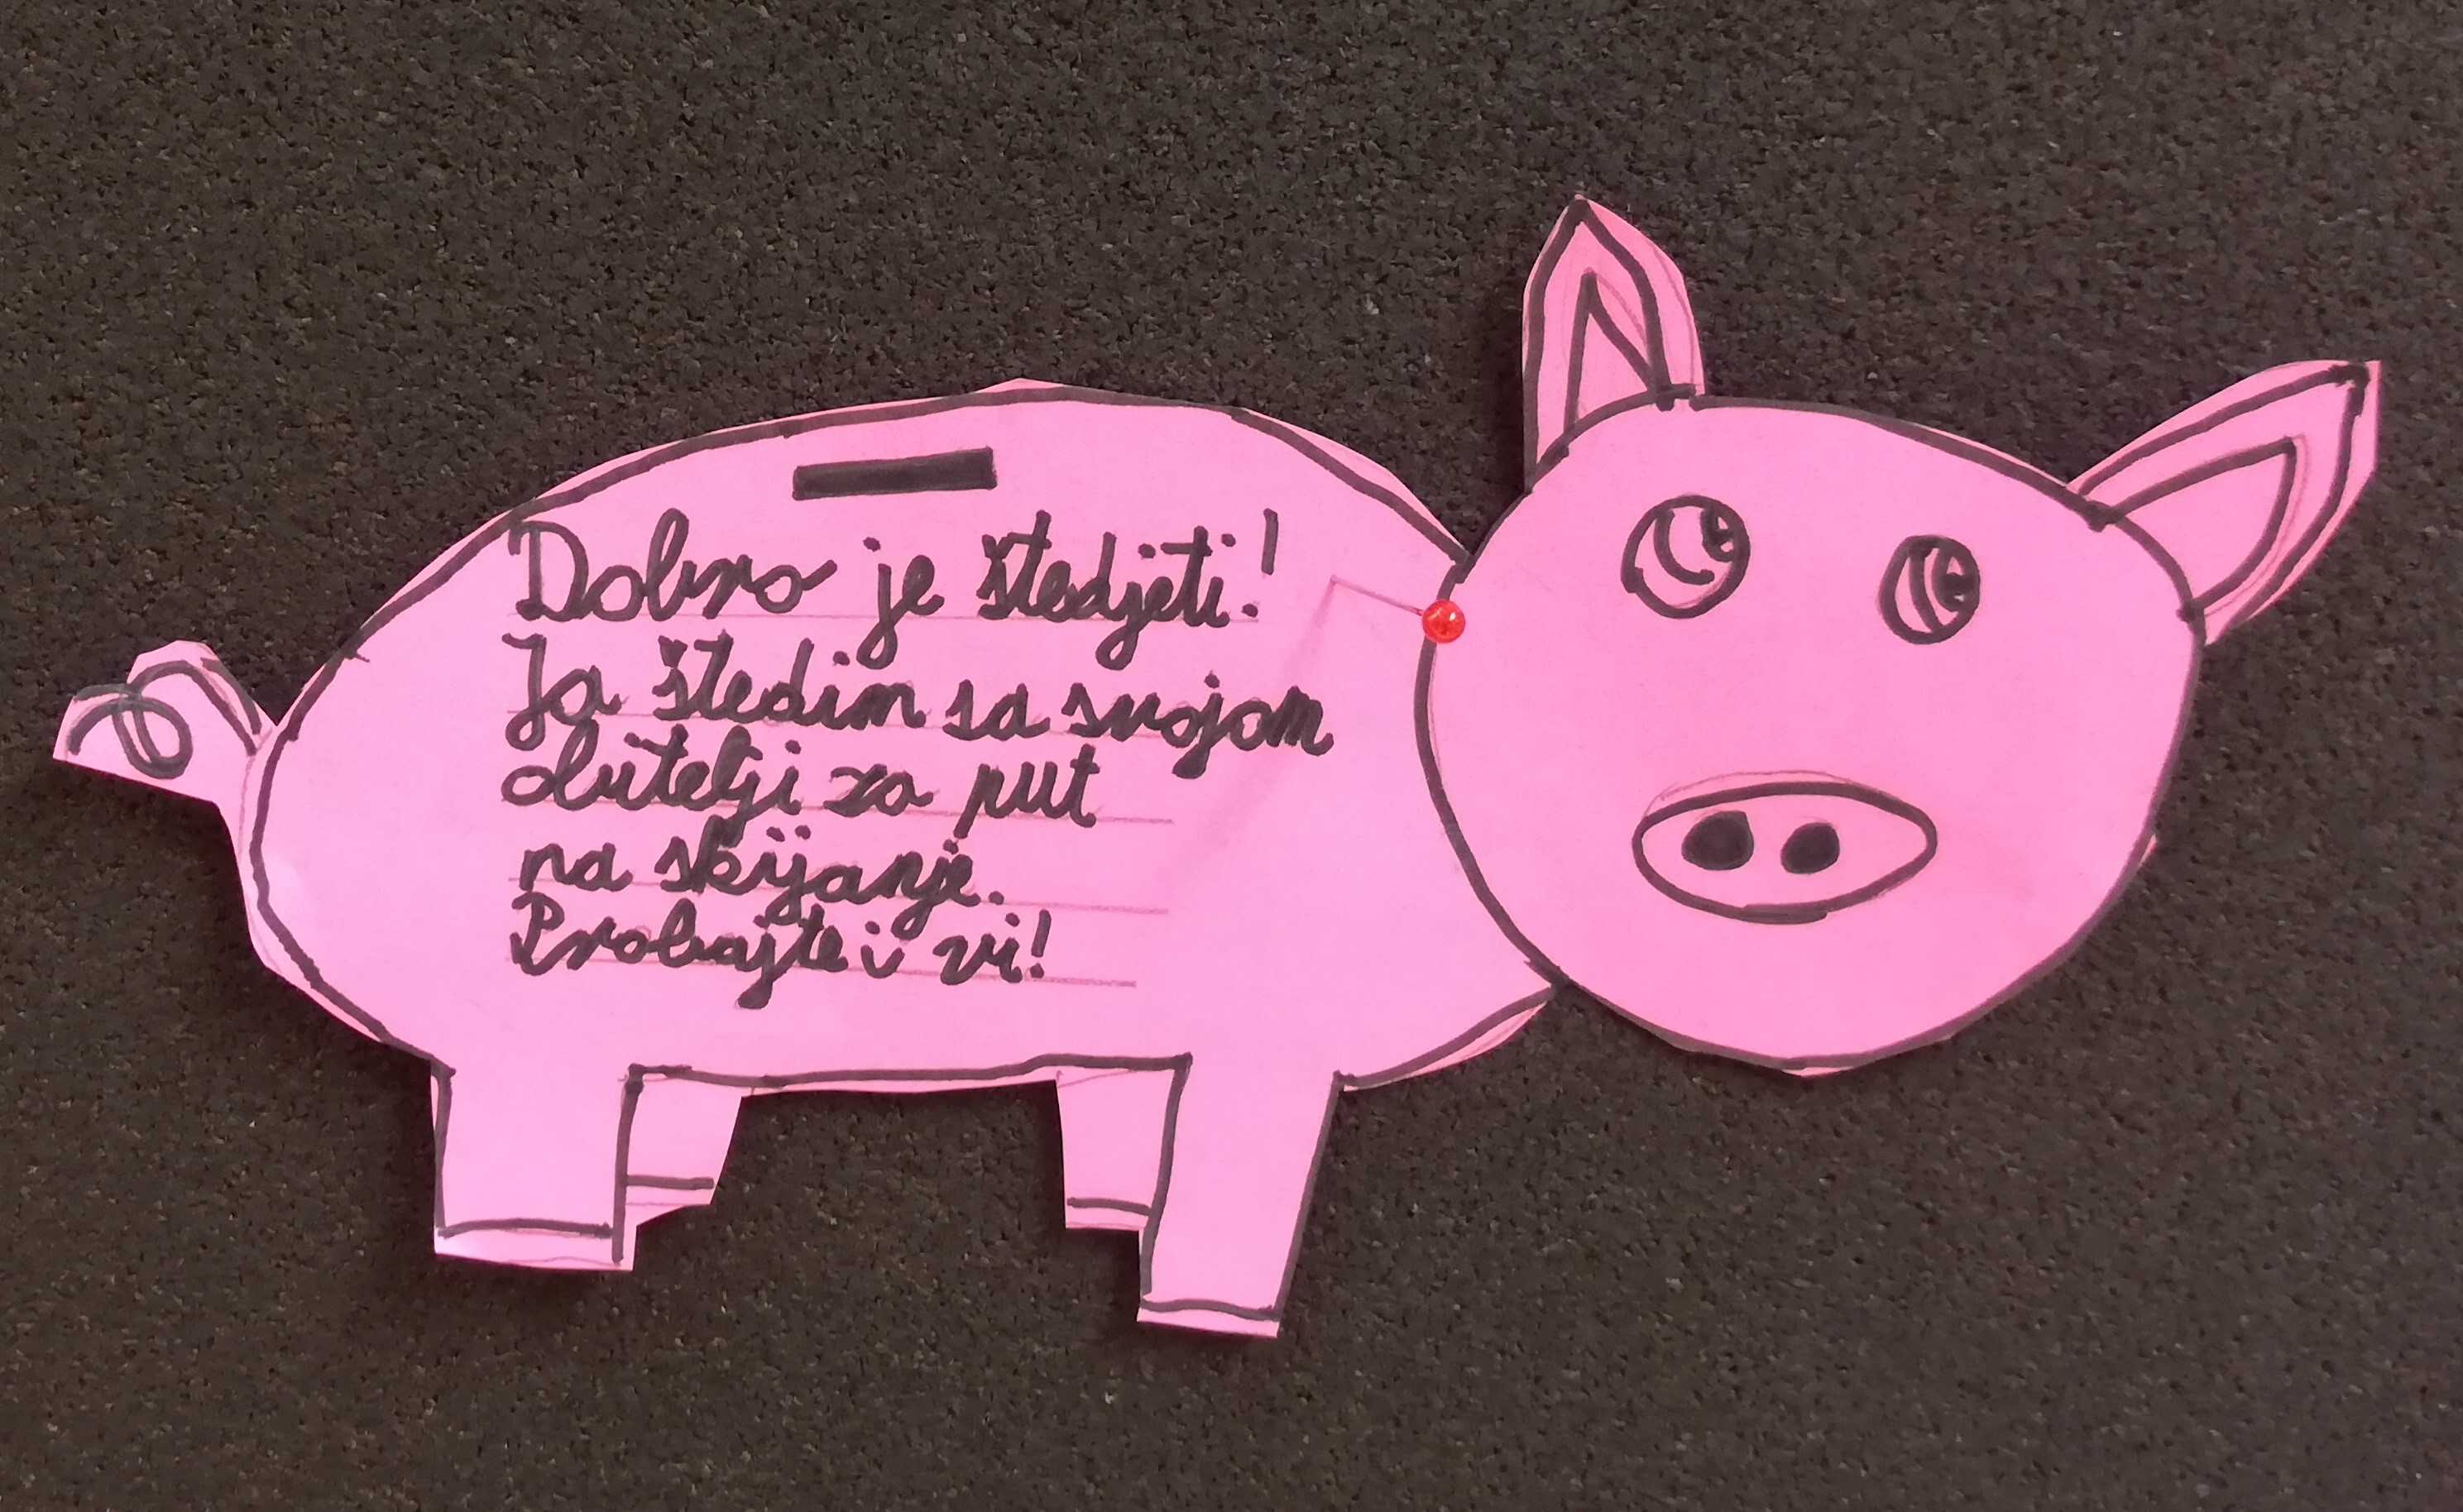 Dobro je štedjeti!
Ja štedim sa svojom
obitelji za put
na skijanje.
Probajte i vi!